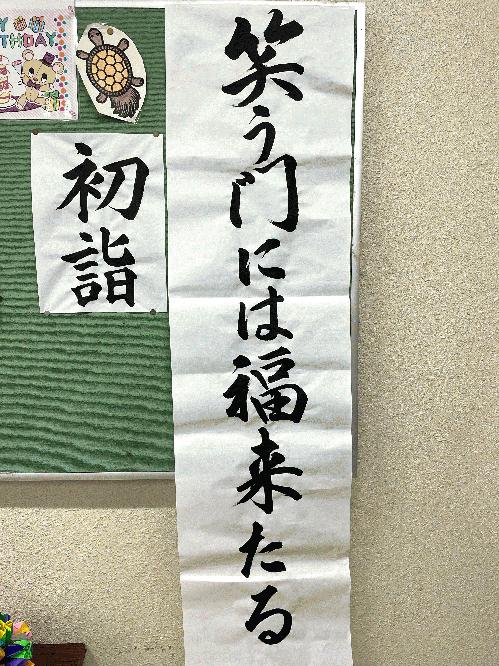 笑う門には福来たる
初詣
THDAY